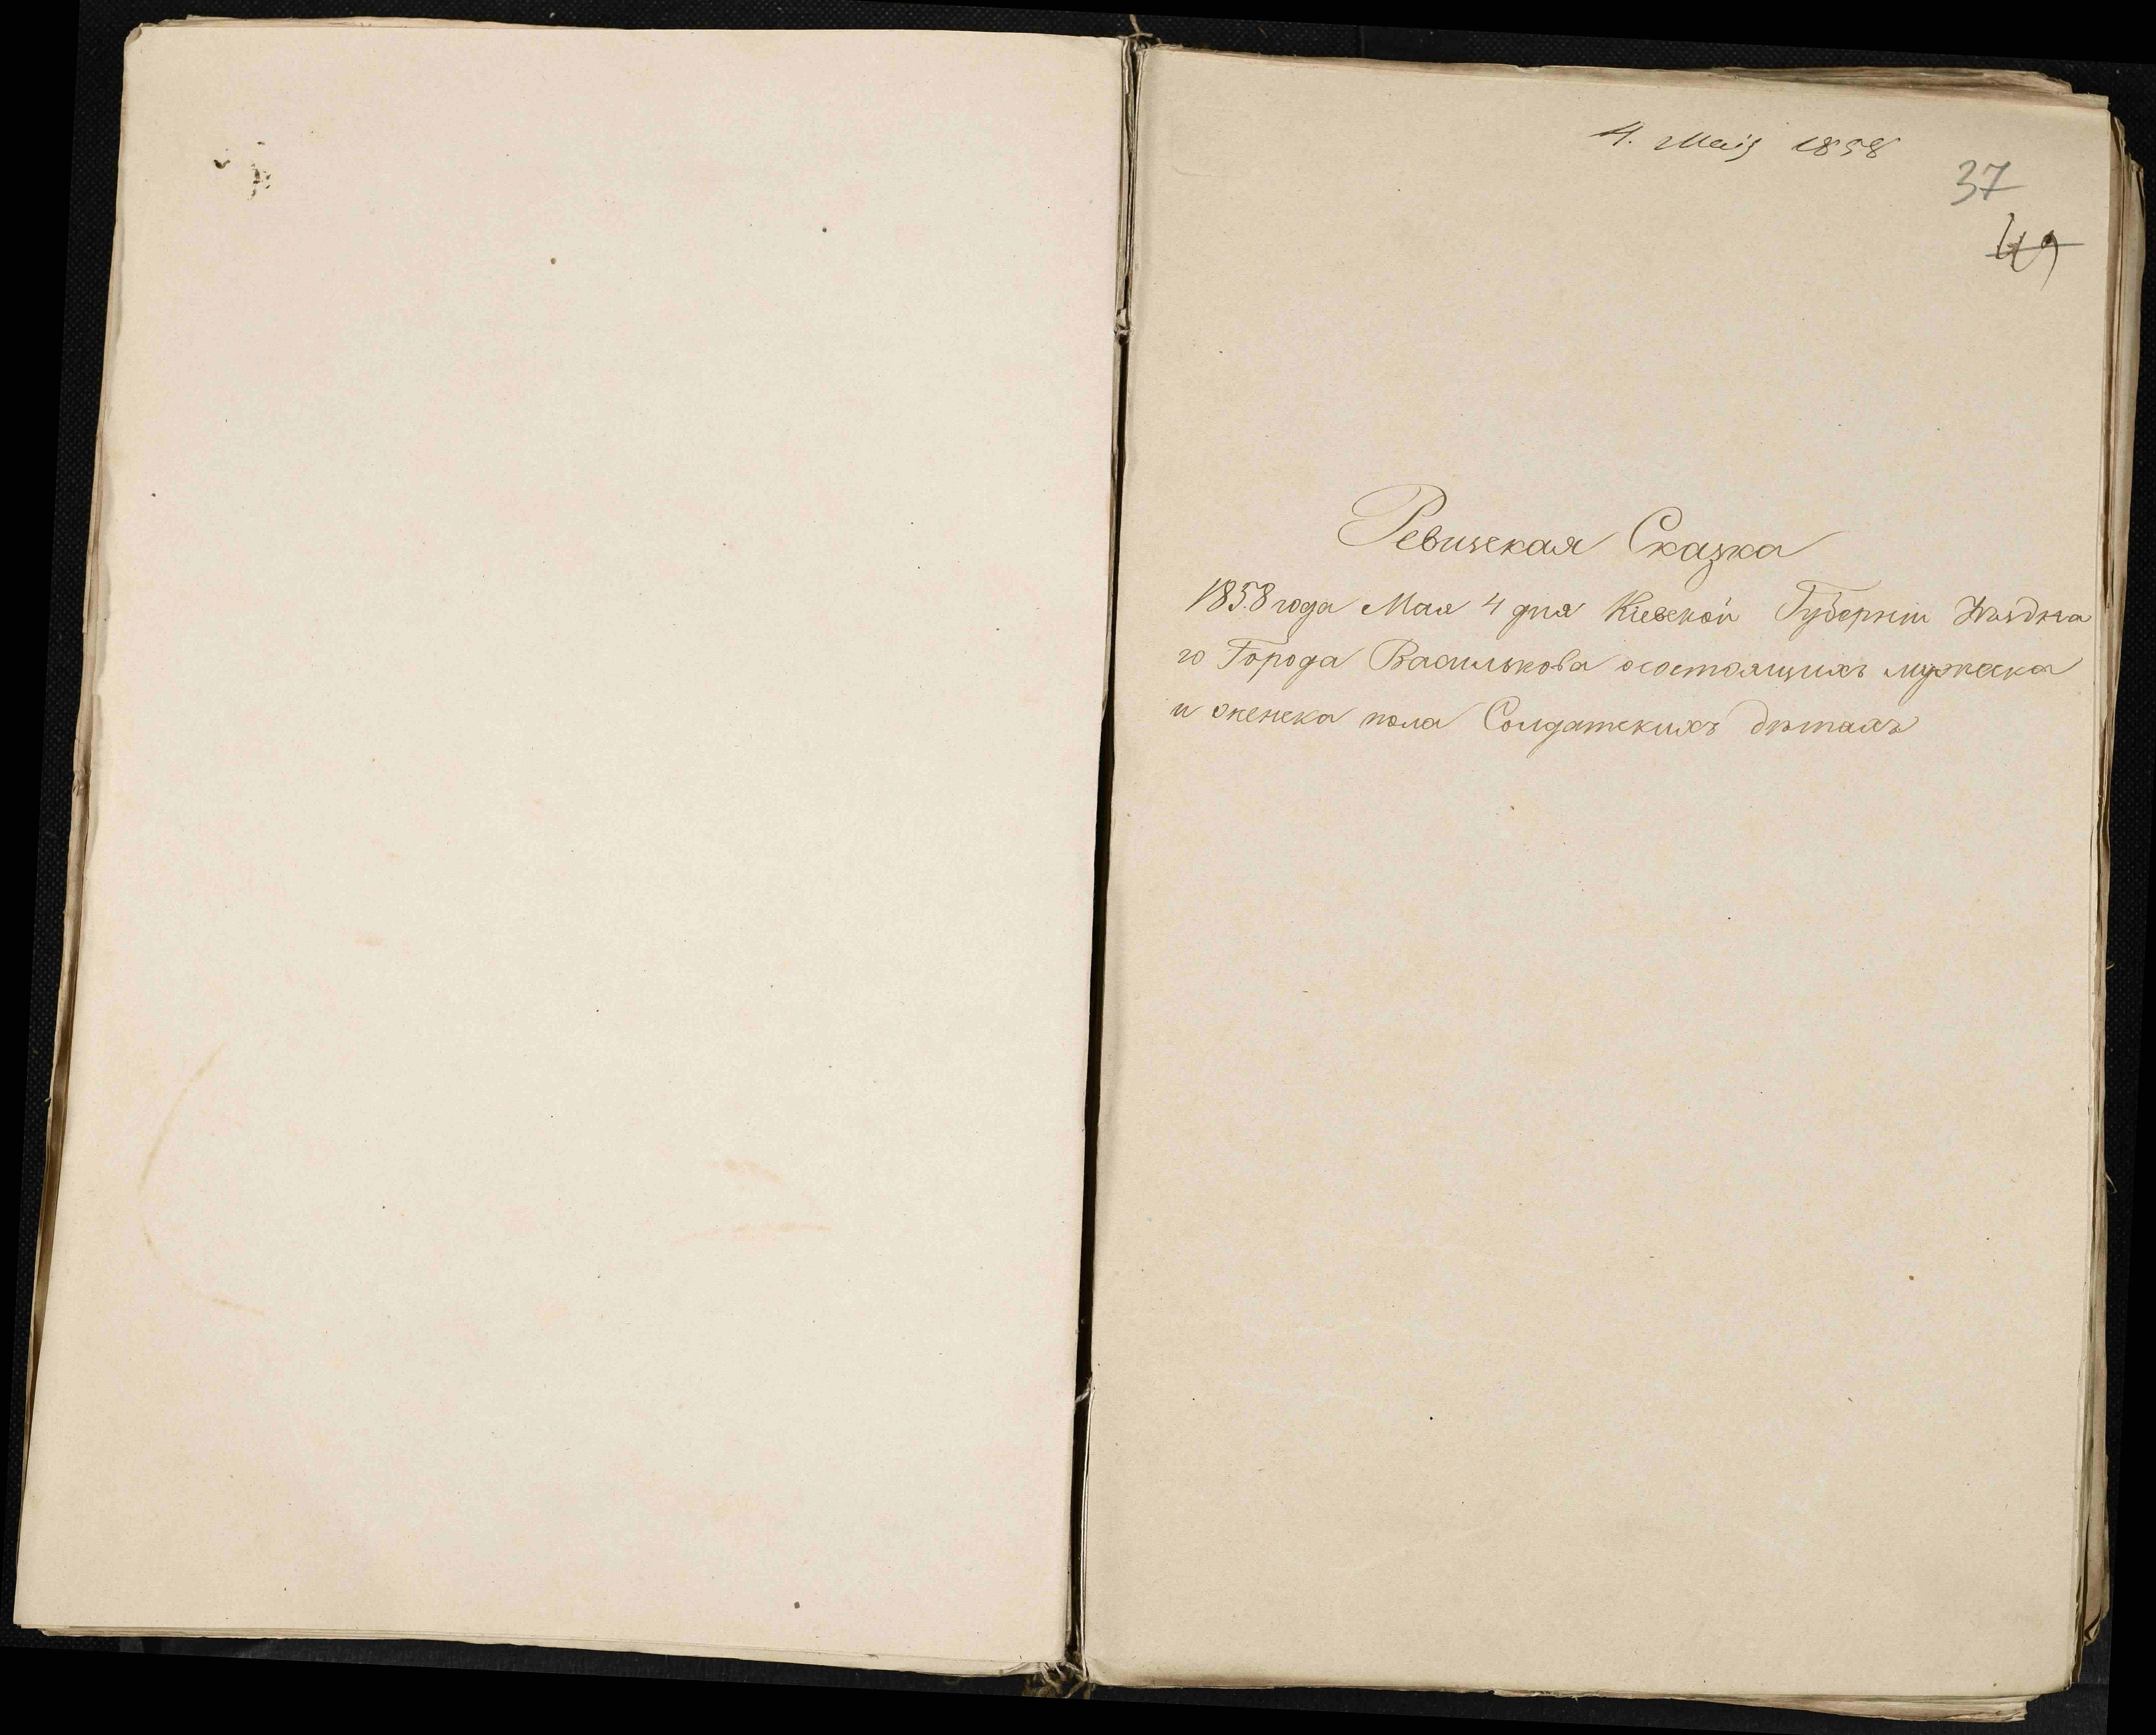 4. Маія 1858
37
49
Ревизская Сказка
1858 года Мая 4 дня Кіевской Губерніи Уѣздна
го Города Василькова осостоящихъ мужеска
и женска пола Солдатскихъ дѣтяхъ